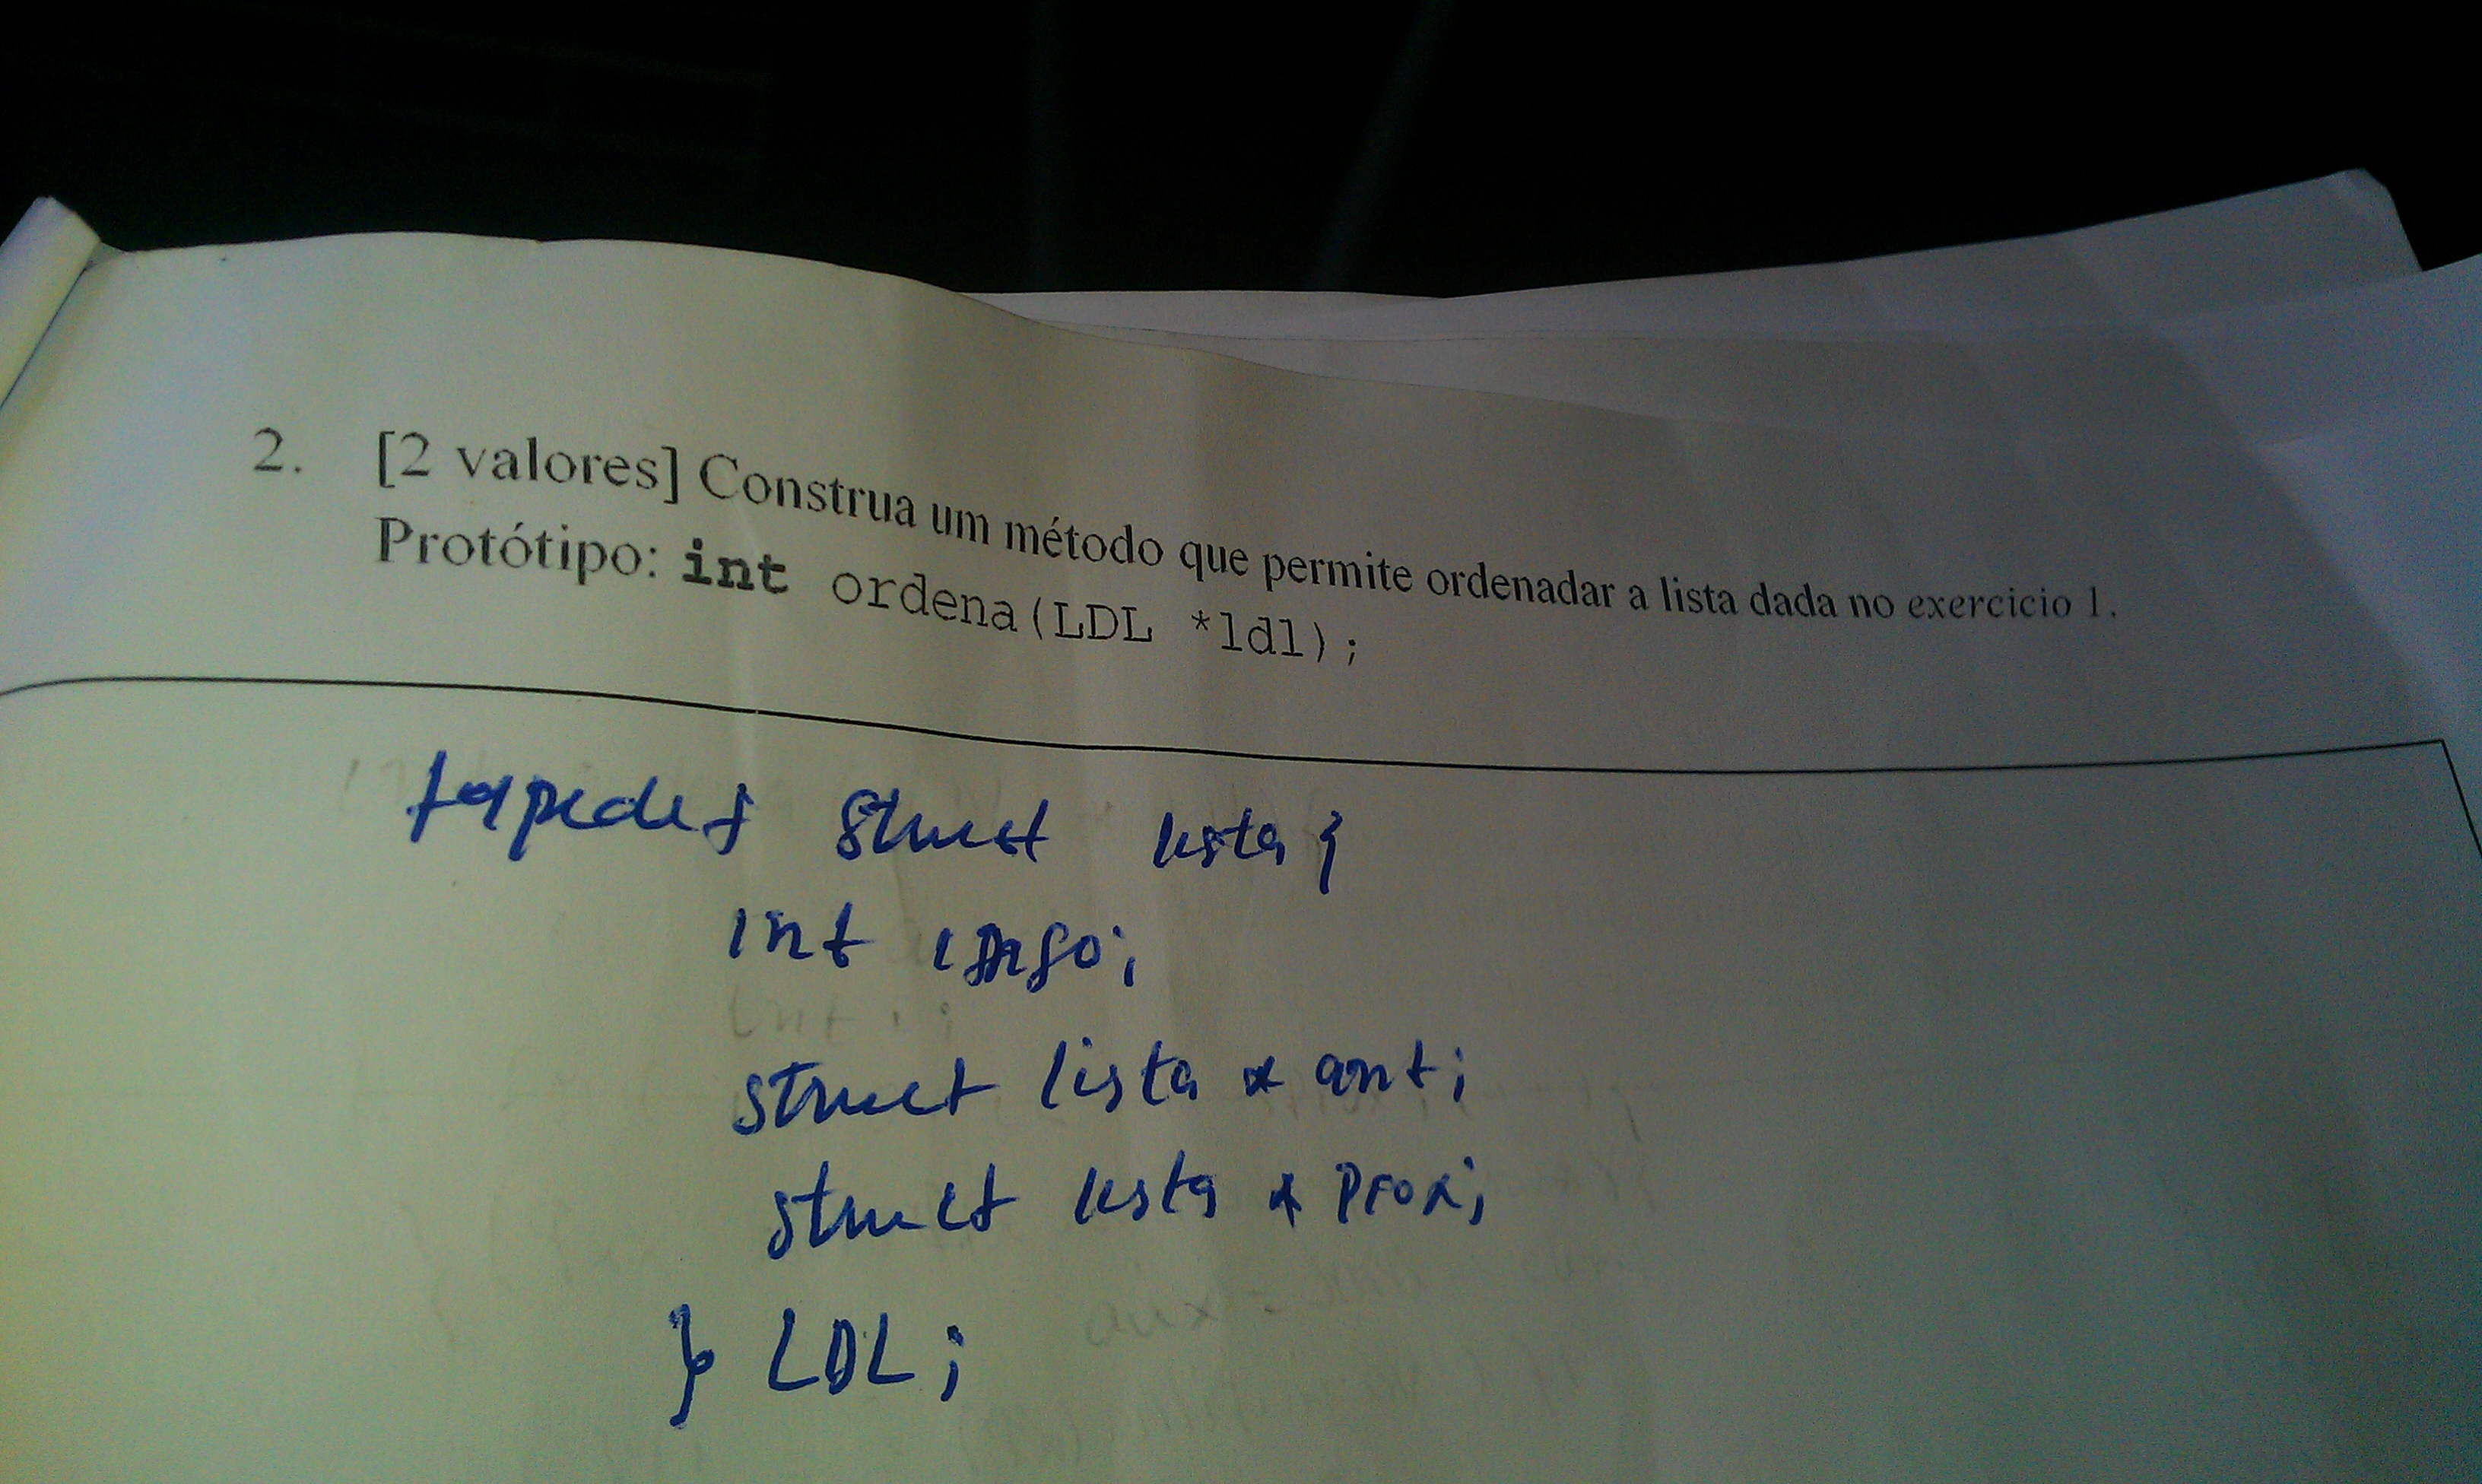 2. [2 valores] Construa um método que permite ordenadar a lista dada no exercicio 1.
Protótipo: int ordena(LDL *ldl);
typedef struct lista {
int info;
struct lista * ant;
struct lista * prox;
} LDL;